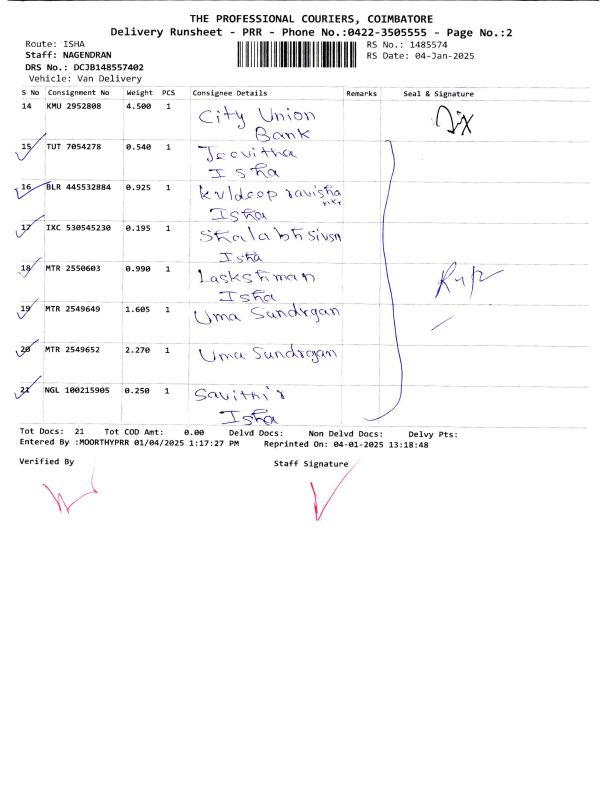 THE PROFESSIONAL COURIERS, COIMBATORE
Delivery Runsheet - PRR - Phone No.:0422-3505555 - Page No.:2
Route: ISHA RS No.: 1485574
Staff: NAGENDRAN RS Date: 04-Jan-2025
DRS No.: DCJB148557402
Vehicle: Van Delivery
S No Consignment No Weight PCS Consignee Details Remarks Seal & Signature
14 KMU 2952808 4.500 1 City Union
Bank
15 TUT 7054278 0.540 1 Jeevitha
Isha
16 BLR 445532884 0.925 1 kuldeep ravisha
Isha
17 IXC 530545230 0.195 1 Shalabh Sivsn
Isha
18 MTR 2550603 0.990 1 Laskshman
Isha
19 MTR 2549649 1.605 1 Uma Sundrgan
20 MTR 2549652 2.270 1 Uma Sundrgan
21 NGL 100215905 0.250 1 Savithir
Isha
Tot Docs: 21 Tot COD Amt: 0.00 Delvd Docs: Non Delvd Docs: Delvy Pts:
Entered By :MOORTHYPRR 01/04/2025 1:17:27 PM Reprinted On: 04-01-2025 13:18:48
Verified By Staff Signature